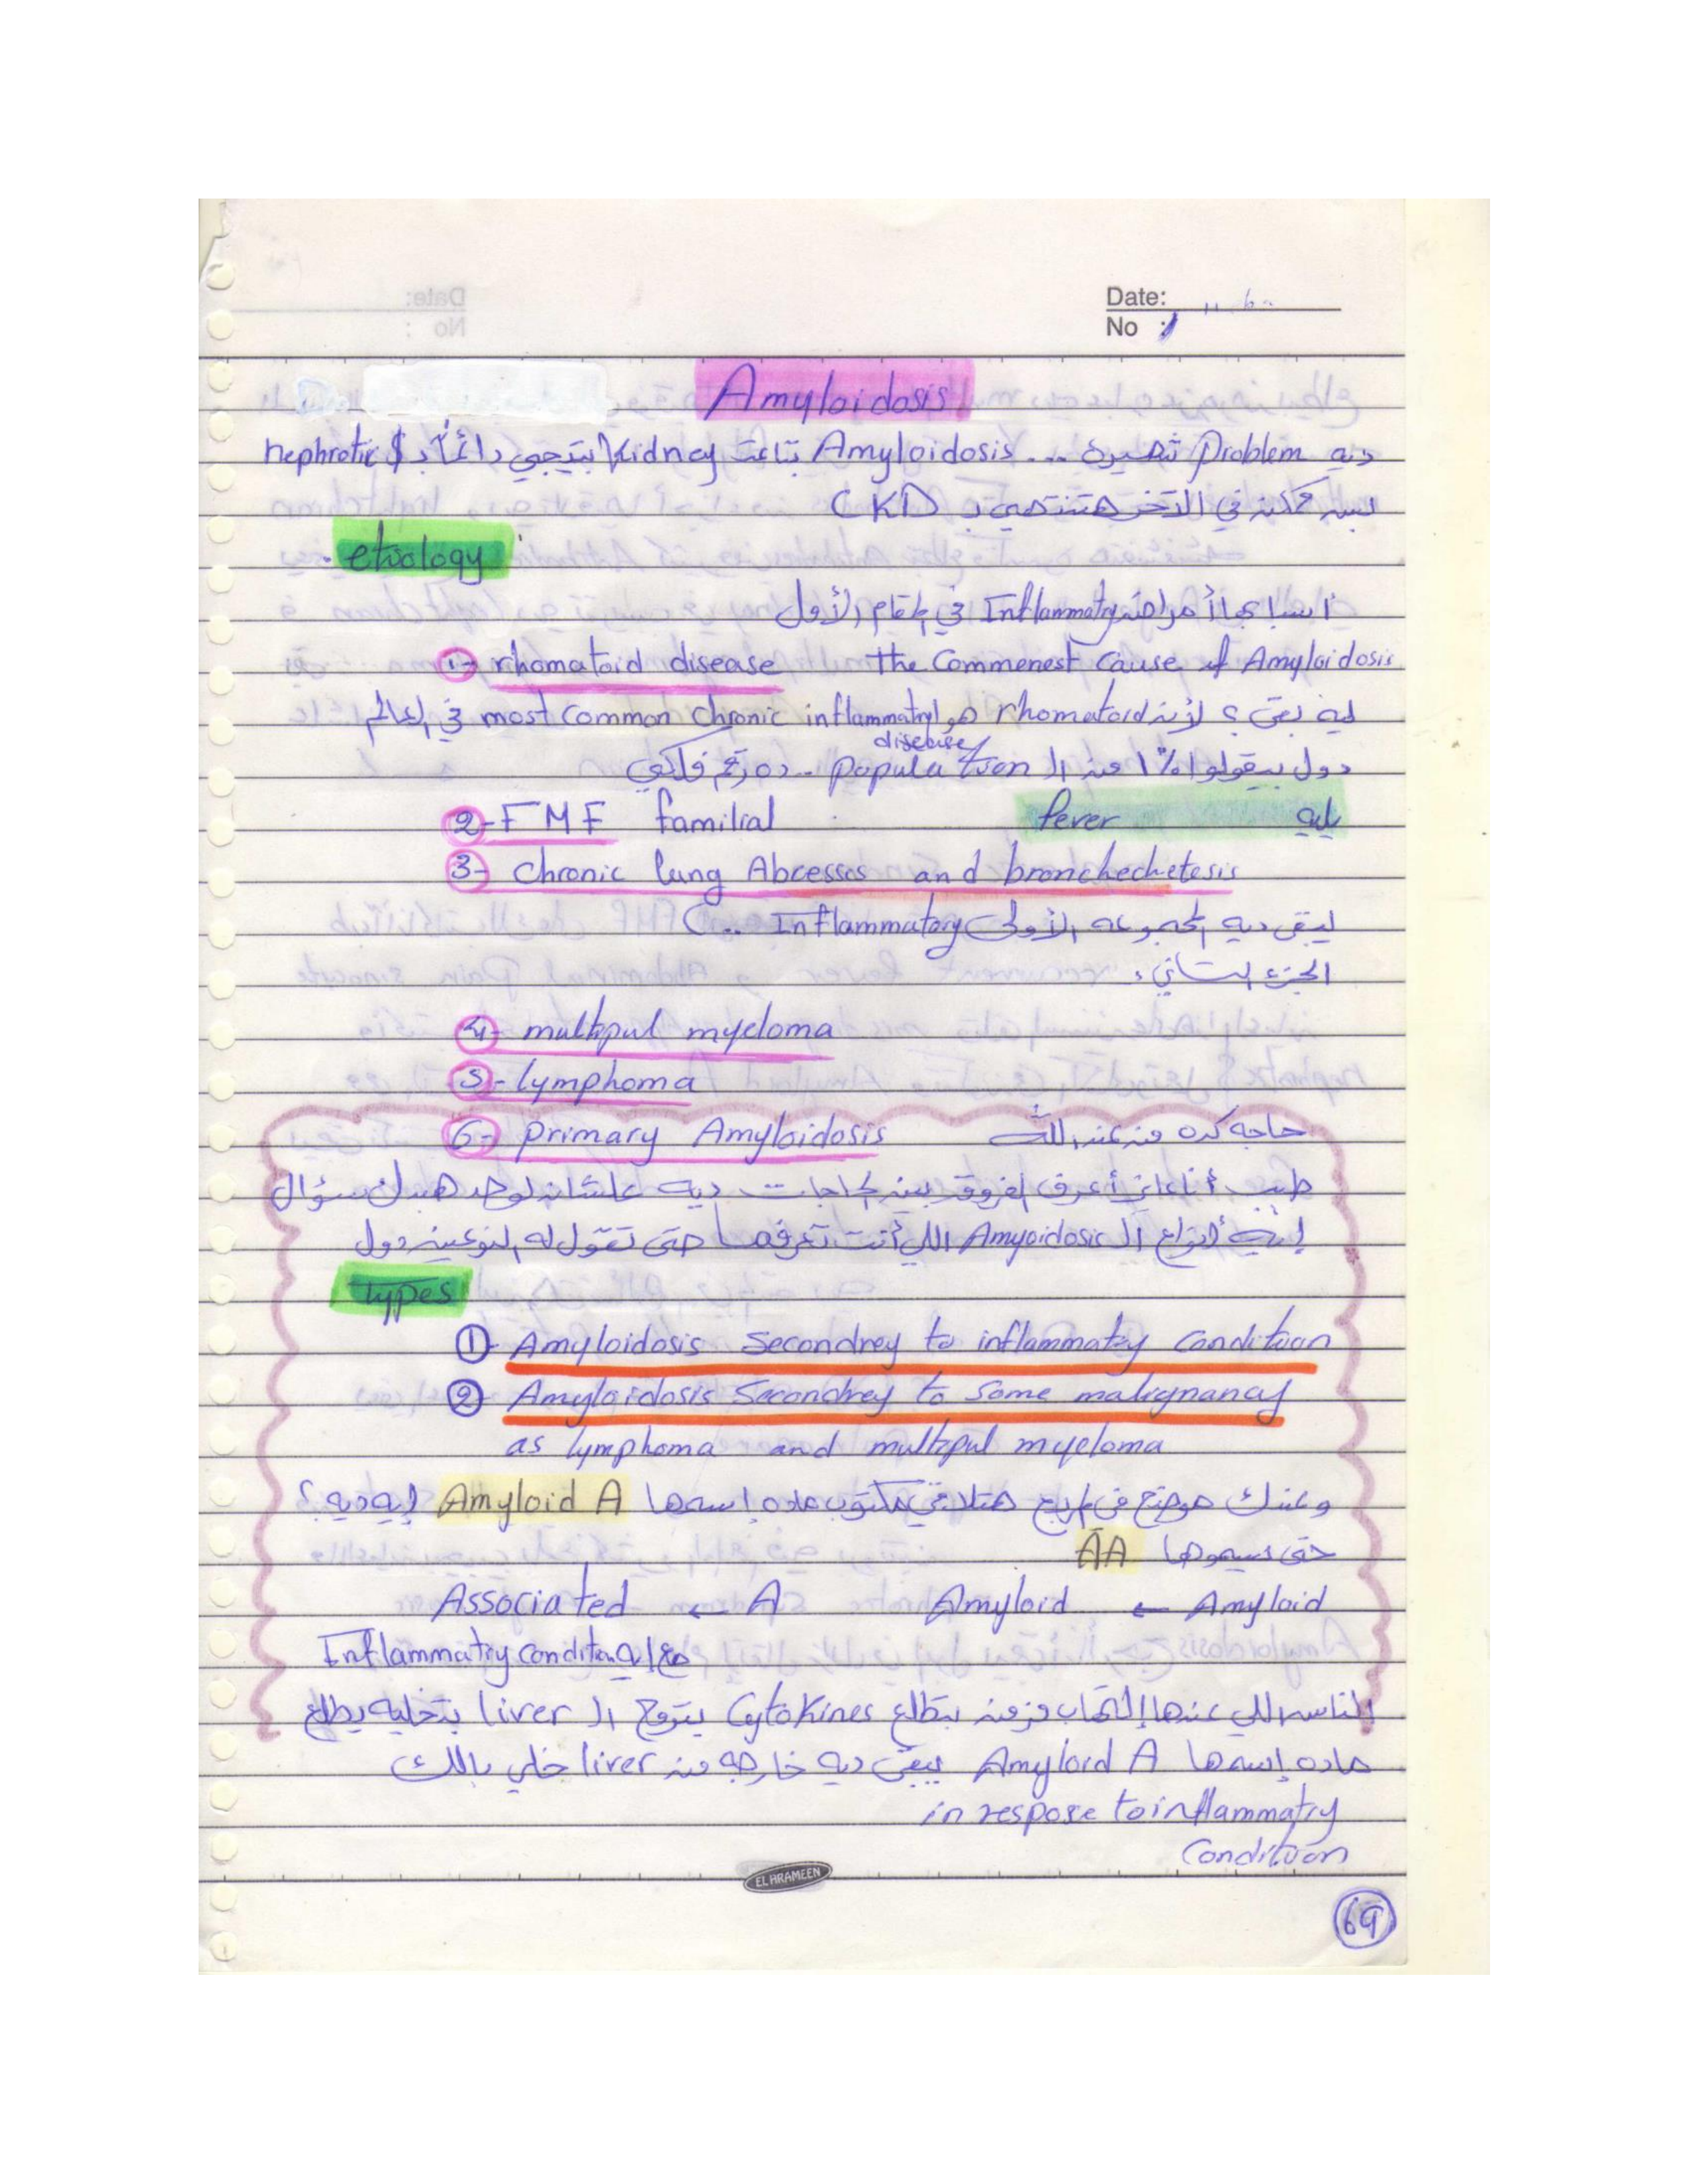 Date:
No :
Amyloidosis
ديه Problem شهيرة ... Amyloidosis بتاعت Kidney بتيجي دائماً بـ nephrotic $
بس ممكن في الآخر هتنتهي بـ CKD
etiology
أسبابها أمراض Inflammatry في المقام الأول
1- rhomatoid disease the Commenest cause of Amyloidosis
ليه بقى ؟ لأن rhomatoid هو most common chronic inflammatry في العالم
disease
دول بيقولوا 1% من الـ population .. ده رقم فلكي
2- FMF familial fever يليه
3- chronic lung Abcesses and bronchechetesis
ليبقى ديه المجموعه الأولى Inflammatory ..
الجزء التاني :
4- multipul myeloma
5- lymphoma
6- primary Amyloidosis حاجه كده من عند الله
طيب أنا عايز أعرف الفروق بين الحاجات ديه علشان لو حد هيسألك سؤال
إيه أنواع الـ Amyoidosis اللي أنت تعرفها حتى تقول له النوعين دول
types
1- Amyloidosis Secondrey to inflammatry condition
2- Amyloidosis Secondrey to Some malignancy
as lymphoma and multipul myeloma
وعندك موضع في المرجع هتلاقي مكتوب ماده إسمها Amyloid A إيه ديه ؟
حتى بيسموها AA
Amyloid ← Amyloid A ← Associated
مع إيه Inflammatry condition
الناس اللي عندها إلتهاب مزمن بتطلع Cytokines بتروح الـ liver بتخليه يطلع
ماده إسمها Amyloid A يبقى ديه خارجه من liver خلي بالك
in respose to inflammatry
Condition
EL HRAMEEN
69